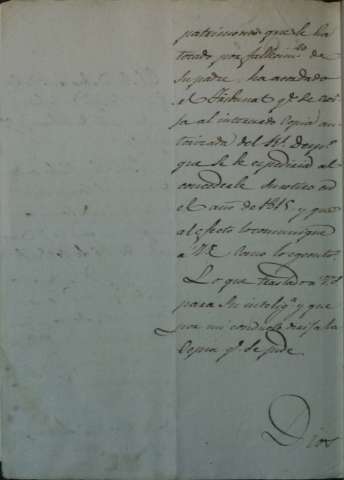 patrimonio que le ha
tocado por fallecim.to de
su padre, ha acordado
el Tribunal q.e de
sa al interesado Copia au-
torizada del Rl. Desp.o
que se le expidió al
concedersele en
el año de 1815 y que
al efecto lo comunique
a VE como lo egecuto.
Lo que traslado a VS
para su intelig.a y que
por mi conducto dirija la
Copia q.e se pide.
Dios